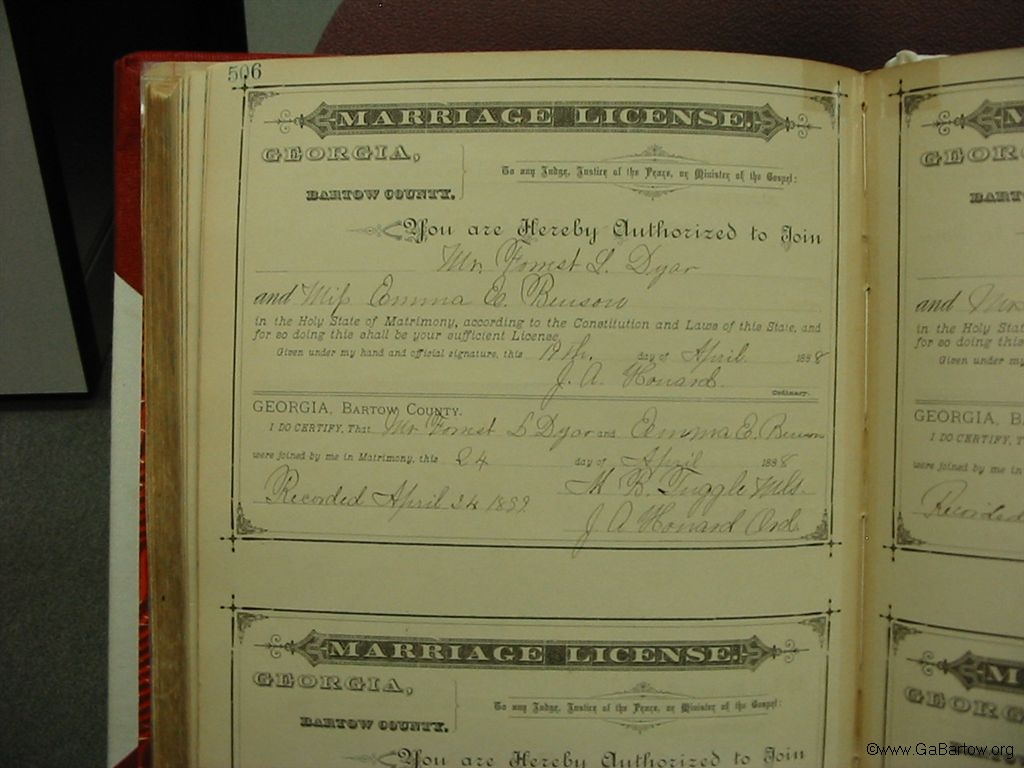 506
MARRIAGE LICENSE.
GEORGIA,
BARTOW COUNTY.
To any Judge, Justice of the Peace, or Minister of the Gospel:
You are Hereby Authorized to Join
Mr. Forrest L. Dyar
and Miss Emma E. Benson
in the Holy State of Matrimony, according to the Constitution and Laws of this State, and
for so doing this shall be your sufficient License.
Given under my hand and official signature, this day of April 1888
J. A. Howard.
Ordinary.
GEORGIA, BARTOW COUNTY.
I DO CERTIFY, That Mr Forrest L Dyar and Emma E. Benson
were joined by me in Matrimony, this 24 day of April 1888
Recorded April 24 M. B. Tuggle
J A Howard Ord.
MARRIAGE LICENSE.
GEORGIA,
BARTOW COUNTY.
To any Judge, Justice of the Peace, or Minister of the Gospel:
You are Hereby Authorized to Join
GEORG
BART
and
in the Holy Stat
for so doing this
Given under my
GEORGIA, B
I DO CERTIFY, T
were joined by me in
Recorded
M
GEORG
BART
©www.GaBartow.org